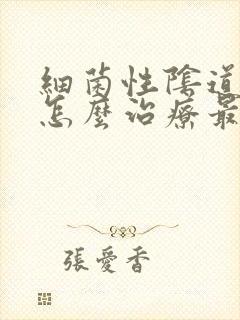 細菌性陰道
怎麼治療最
張愛香